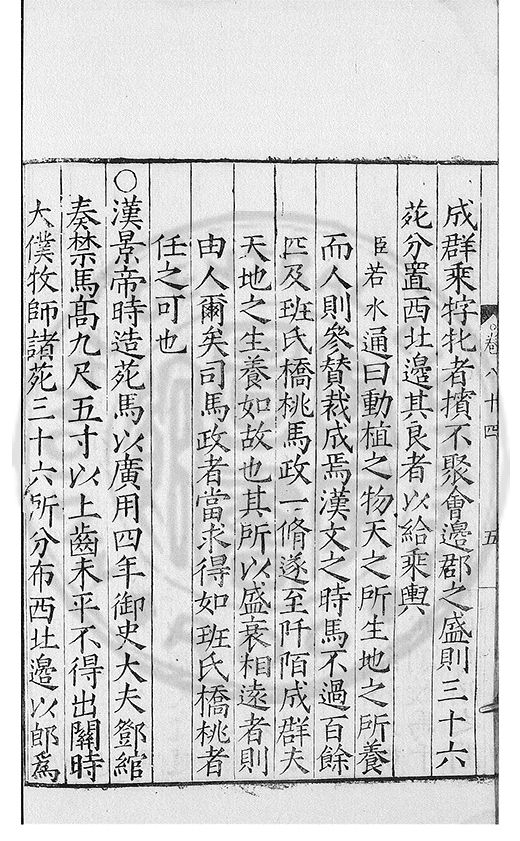 卷八十四
五
成群乘牸牝者擯不聚會邊郡之盛則三十六
苑分置西北邊其良者以給乘輿
臣若水通曰動植之物天之所生地之所養
而人則參賛裁成焉漢文之時馬不過百餘
匹及班氏橋桃馬政一脩遂至阡陌成群夫
天地之生養如故也其所以盛衰相遠者則
由人爾矣司馬政者當求得如班氏橋桃者
任之可也
○漢景帝時造苑馬以廣用四年御史大夫鄧綰
奏禁馬髙九尺五寸以上齒未平不得出關時
大僕牧師諸苑三十六所分布西北邊以郎為